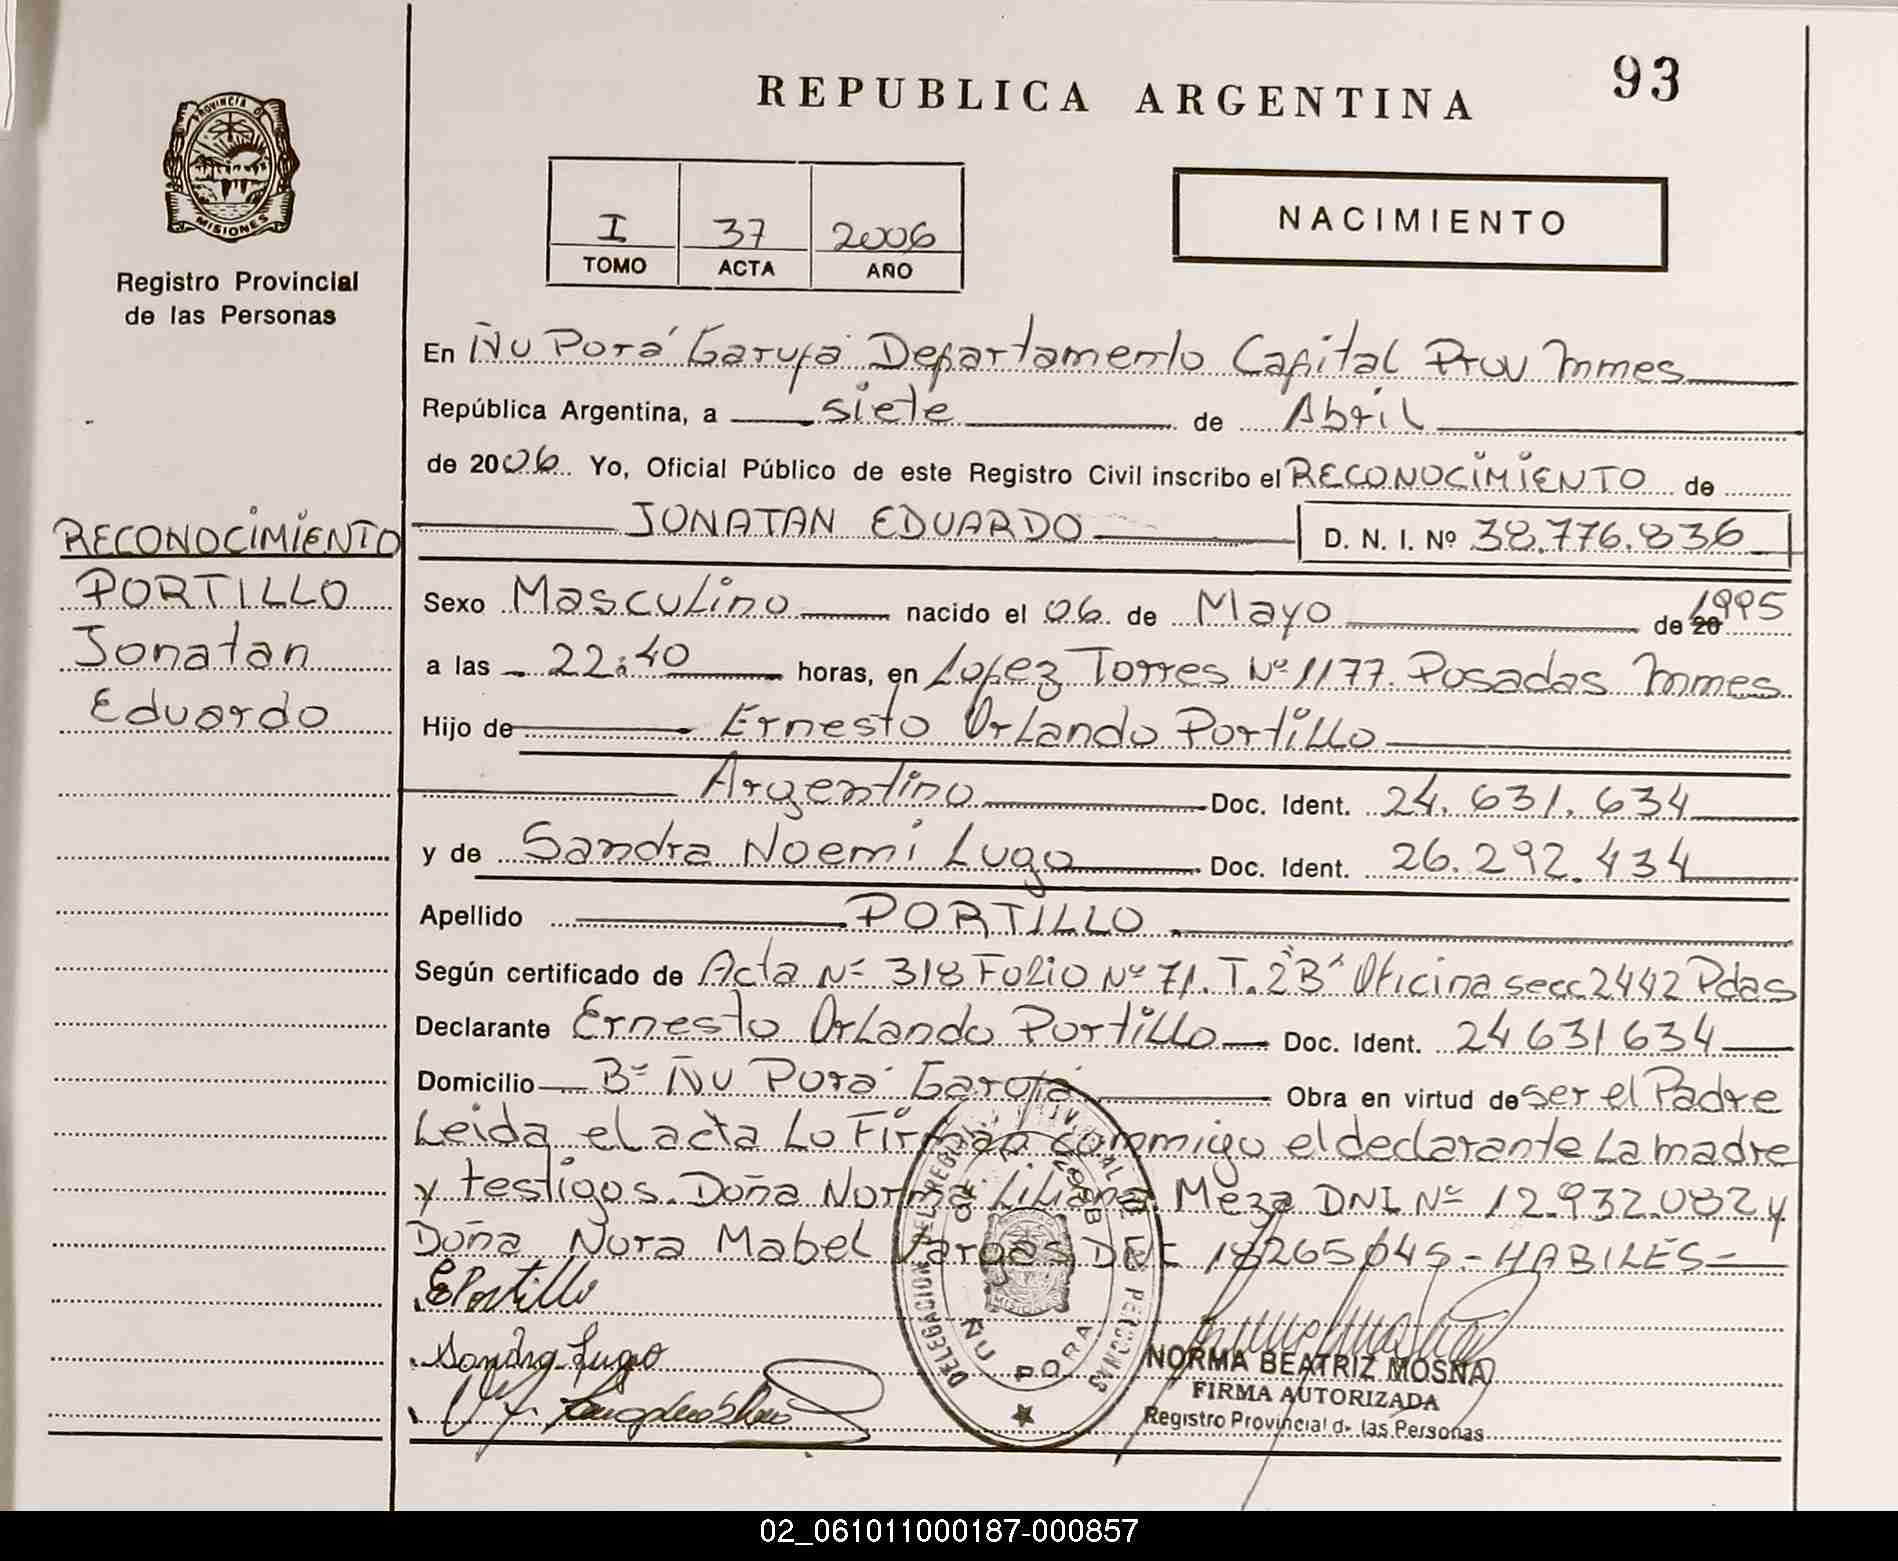 93
REPUBLICA ARGENTINA
PROVINCIA D
MISIONES
Registro Provincial
de las Personas
I 37 2006
TOMO ACTA AÑO
NACIMIENTO
En Ñu Porá Garupá Departamento Capital Prov Mnes
República Argentina, a siete de Abril
de 2006. Yo, Oficial Público de este Registro Civil inscribo el RECONOCIMIENTO de
JONATAN EDUARDO D. N. I. Nº 38.776.836
RECONOCIMIENTO
PORTILLO
Jonatan
Eduardo
Sexo Masculino nacido el 06 de Mayo de 20 1995
a las 22:40 horas, en Lopez Torres Nº 1177. Posadas Mnes.
Hijo de Ernesto Orlando Portillo
Argentino Doc. Ident. 24.631.634
y de Sandra Noemi Lugo Doc. Ident. 26.292.434
Apellido PORTILLO
Según certificado de Acta Nº 318 Folio Nº 71. T. 2ºB" Oficina secc 2442 Pdas
Declarante Ernesto Orlando Portillo Doc. Ident. 24 631 634
Domicilio Bº Ñu Porá Garupá Obra en virtud de ser el Padre
Leida el acta Lo Firman commigo el declarante La madre
y testigos. Doña Norma Liliana Meza DNI Nº 12.932.082 y
Doña Nora Mabel Vargas DNI 18265045 - HABILES -
EPortillo
Sandra Lugo
DELEGACION DEL REGISTRO PROVINCIAL DE LAS PERSONAS
ÑU PORA
NORMA BEATRIZ MOSNA
FIRMA AUTORIZADA
Registro Provincial de las Personas
02_061011000187-000857